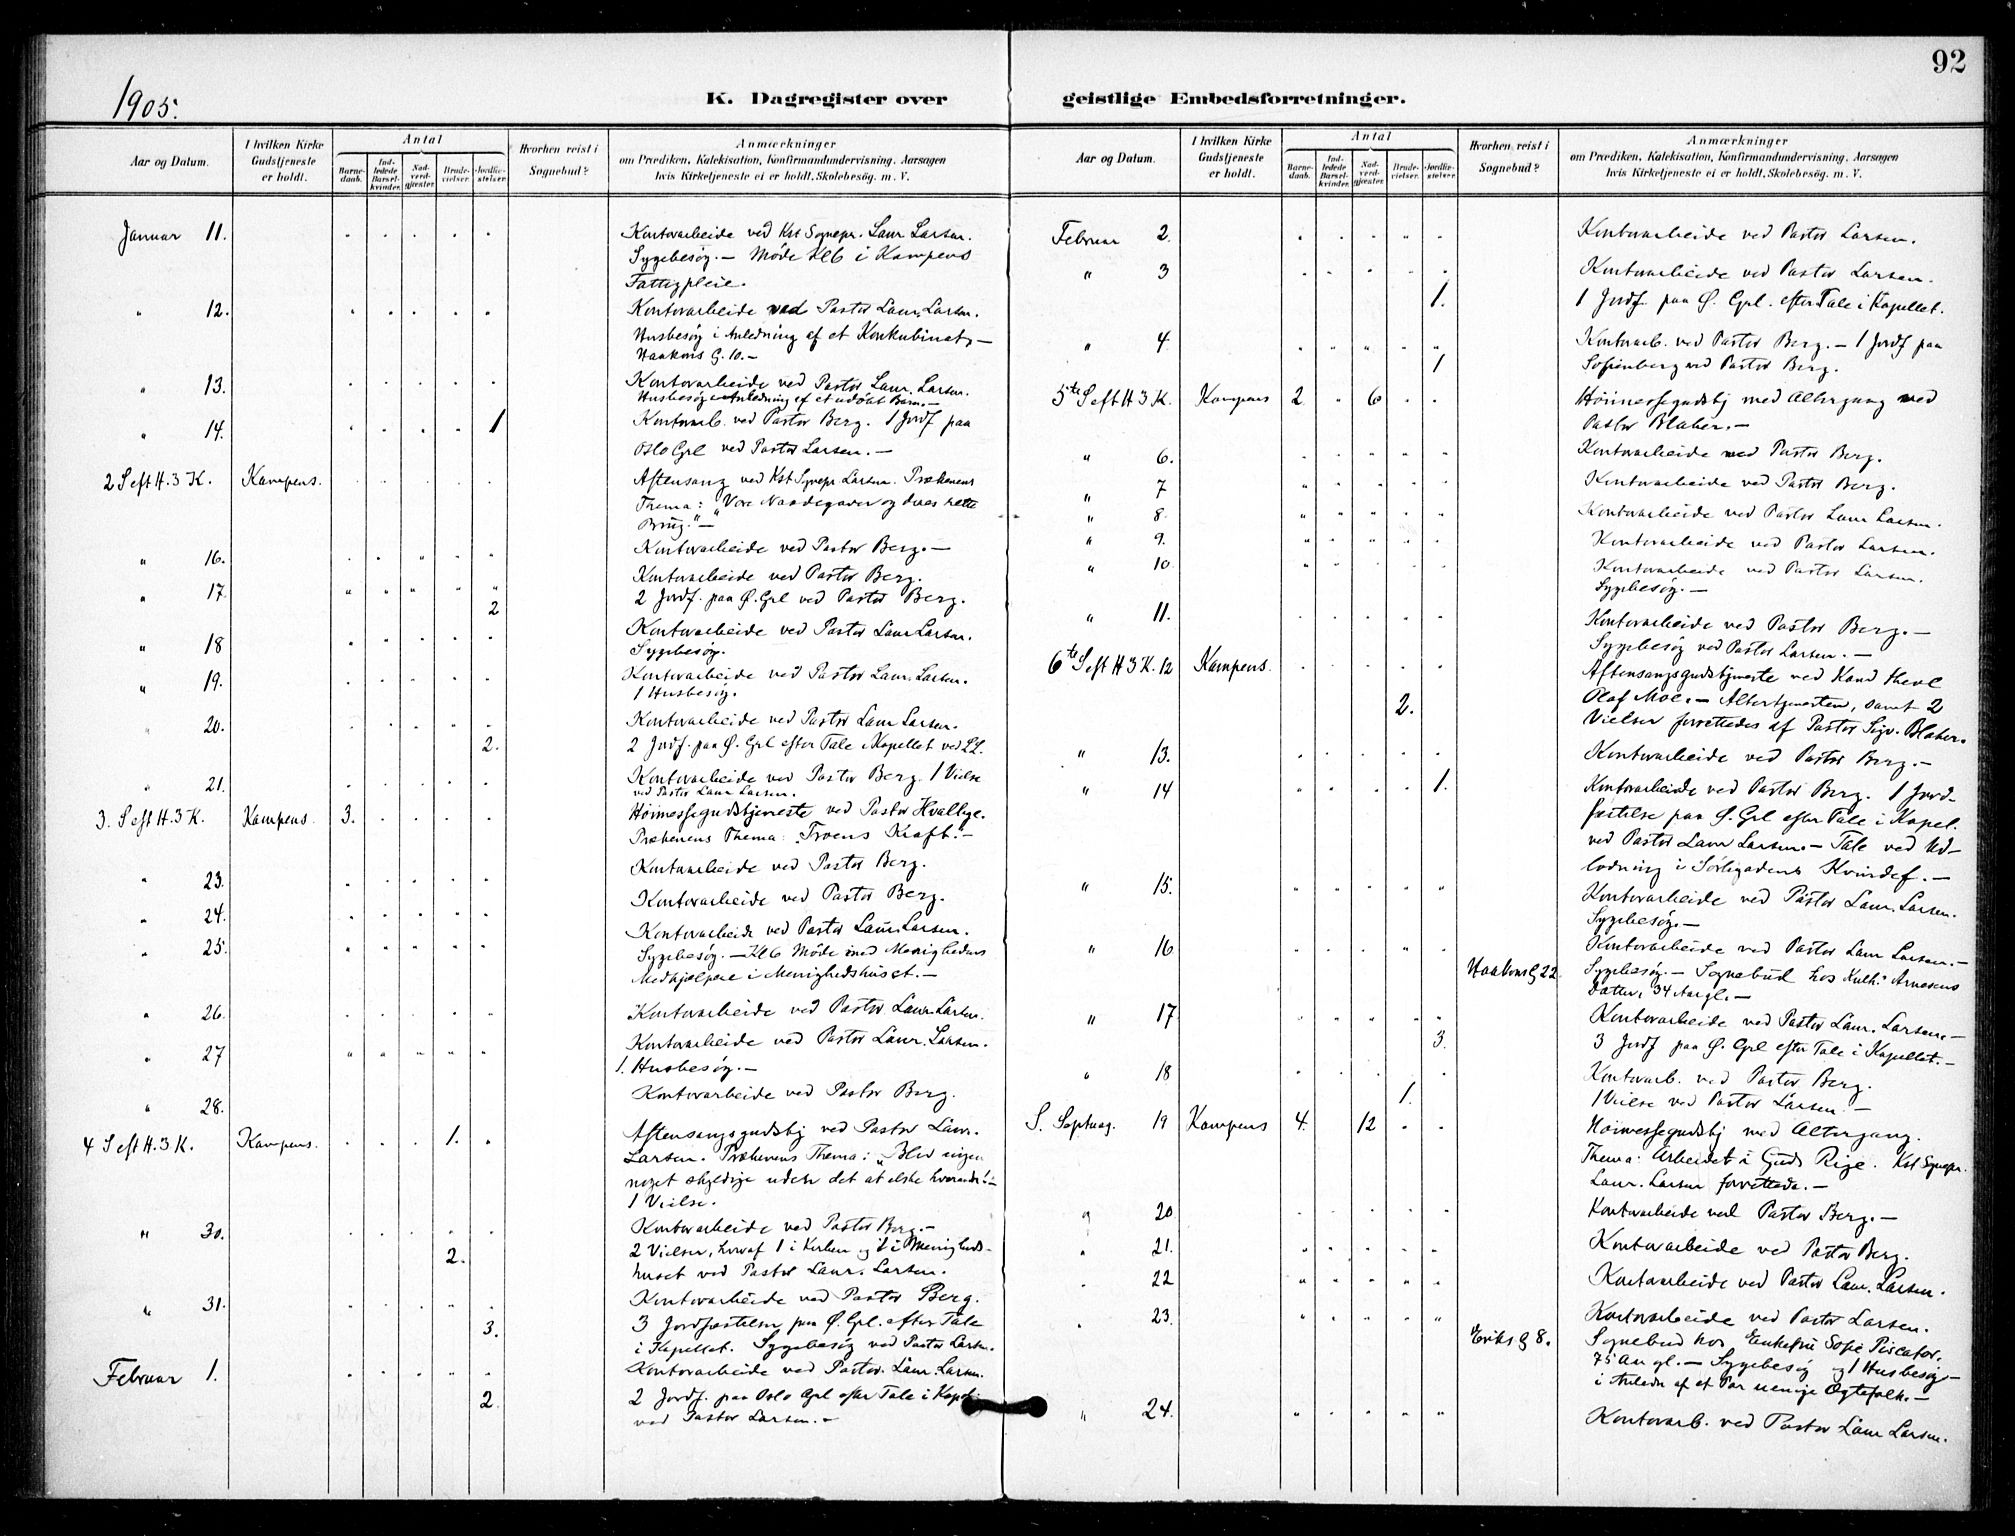 92
1905.
K. Dagregister over geistlige Embedsforretninger.
Aar og Datum.
I hvilken Kirke Gudstjeneste er holdt.
Antal
Barnedaab.
Indledede Barselkvinder.
Nadverdgjester.
Brudevielser.
Jordfæstelser.
Hvorhen reist i Sognebud?
Anmærkninger
om Prædiken, Katekisation, Konfirmandundervisning. Aarsagen
hvis Kirketjeneste ei er holdt. Skolebesög. m. V.
Januar 11. Kontorarbeide ved Kst Sognepr. Laur Larsen.
Sygebesög. — Möde Kl 6 i Kampens
Fattigpleie.
" 12. Kontorarbeide ved Pastor Laur. Larsen.
Husbesög i Anledning af et Konkubinat, —
Haakons G. 10. —
" 13. Kontorarbeide ved Pastor Laur. Larsen.
Husbesög i Anledning af et udöbt Barn. —
" 14. 1 Kontorarb. ved Pastor Berg. 1 Jordf paa
Oslo Grl ved Pastor Larsen. —
2 S eft H. 3 K. Kampens. Aftensang ved Kst Sognepr Larsen. Prækenens
Thema: "Vore Naadegaver og deres rette
Brug." —
" 16. Kontorarbeide ved Pastor Berg. —
" 17. Kontorarbeide ved Pastor Berg.
2 2 Jordf. paa Ø. Grl ved Pastor Berg.
" 18 Kontorarbeide ved Pastor Laur Larsen.
Sygebesög.
" 19. Kontorarbeide ved Pastor Laur. Larsen.
1 Husbesög.
" 20. Kontorarbeide ved Pastor Laur Larsen.
2. 2 Jordf. paa Ø. Grl efter Tale i Kapellet ved LL.
" 21. Kontorarbeide ved Pastor Berg. 1 Vielse
ved Pastor Laur Larsen.
3. S eft H. 3 K. Kampens. 3. Höimessegudstjeneste ved Pastor Hvalbye.
Prækenens Thema: "Troens Kraft." —
" 23. Kontorarbeide ved Pastor Berg.
" 24. Kontorarbeide ved Pastor Berg.
" 25. Kontorarbeide ved Pastor Laur. Larsen.
Sygebesög. — Kl 6 Möde med Menighedens
Medhjælpere i Menighedshuset. —
" 26. Kontorarbeide ved Pastor Laur. Larsen.
" 27 Kontorarbeide ved Pastor Laur. Larsen.
1. Husbesög. —
" 28. Kontorarbeide ved Pastor Berg.
4 S eft H. 3 K. Kampens. 1. Aftensangsgudstj ved Pastor Laur.
Larsen. Prækenens Thema: "Bliv ingen
noget skyldige uden det at elske hverandre!" —
1 Vielse.
" 30. Kontorarbeide ved Pastor Berg. —
2. 2 Vielser, hvoraf 1 i Kirken og 1 i Menigheds-
huset ved Pastor Laur. Larsen.
" 31. Kontorarbeide ved Pastor Berg.
3. 3 Jordfæstelser paa Ø. Grl. efter Tale
i Kapellet. Sygebesög ved Pastor Larsen.
Februar 1. Kontorarbeide ved Pastor. Laur. Larsen.
2 2 Jordf. paa Oslo Grl efter Tale i Kapel
ved Pastor Larsen. —
Aar og Datum.
I hvilken Kirke Gudstjeneste er holdt.
Antal
Barnedaab.
Indledede Barselkvinder.
Nadverdgjester.
Brudevielser.
Jordfæstelser.
Hvorhen reist i Sognebud?
Anmærkninger
om Prædiken, Katekisation, Konfirmandundervisning. Aarsagen
hvis Kirketjeneste ei er holdt. Skolebesög. m. V.
Februar 2. Kontorarbeide ved Pastor Larsen.
" 3 Kontorarbeide ved Pastor Larsen.
1. 1 Jordf. paa Ø. Grl. efter Tale i Kapellet.
" 4. Kontorarb. ved Pastor Berg. — 1 Jordf paa
1 Sofienberg ved Pastor Berg.
5te S eft H 3 K. Kampens 2 6 Höimessegudstj med Altergang ved
Pastor Blaker. —
" 6. Kontorarbeide ved Pastor Berg.
" 7 Kontorarbeide ved Pastor Berg.
" 8. Kontorarbeide ved Pastor Laur Larsen.
" 9. Kontorarbeide ved Pastor Larsen.
" 10. Kontorarbeide ved Pastor Larsen.
Sygebesög. —
" 11. Kontorarbeide ved Pastor Berg. —
Sygebesög ved Pastor Larsen. —
6te S eft H 3 K. 12 Kampens. Aftensangsgudstjeneste ved Kand theol
2. Olaf Moe. — Altertjenesten, samt 2
Vielser forrettedes af Pastor Sigv. Blaker.
" 13. Kontorarbeide ved Pastor Berg. —
" 14 1. Kontorarbeide ved Pastor Berg. 1 Jord-
fæstelse paa Ø. Grl efter Tale i Kapel.
ved Pastor Laur Larsen. — Tale ved Ud-
lodning i Sörligadens Kvindef. —
" 15. Kontorarbeide ved Pastor Laur. Larsen.
Sygebesög. —
" 16 Kontorarbeide ved Pastor Laur Larsen. —
Haakons G 22. Sygebesög. — Sognebud hos Kulh. Arnesens
Datter, 34 Aar gl. —
" 17 Kontorarbeide ved Pastor Laur. Larsen. —
3. 3 Jordf paa Ø. Grl efter Tale i Kapellet. —
" 18 Kontorarb. ved Pastor Berg.
1. 1 Vielse ved Pastor Larsen. —
S. Septuag. 19 Kampens 4. 12 Höimessegudstj med Altergang.
Thema: Arbeidet i Guds Rige. Kst Sognepr.
Laur. Larsen forrettede. —
" 20 Kontorarbeide ved Pastor Berg. —
" 21. Kontorarbeide ved Pastor Berg.
" 22 Kontorarbeide ved Pastor Laur. Larsen.
" 23. Kontorarbeide ved Pastor Larsen.
Eriks G 8. Sognebud hos Enkefru Sofie Piscator,
75 Aar gl. — Sygebesög og 1 Husbesög —
i Anledn af et Par uenige Ægtefolk. —
" 24. Kontorarb. ved Pastor Laur Larsen.